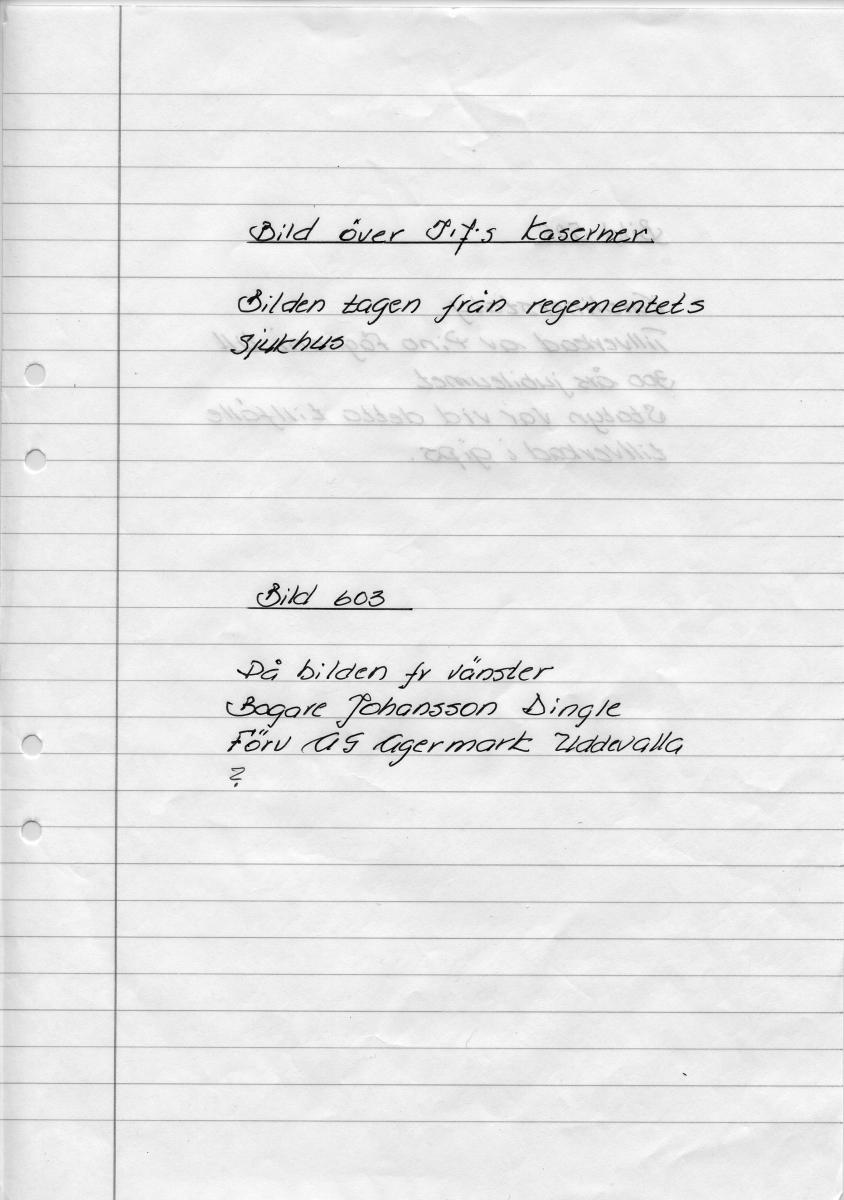 Bild över I.17.s Kaserner.
Bilden tagen från regementets
sjukhus
Bild 603
På bilden fr vänster
Bagare Johansson Dingle
Förv AG Agermark Uddevalla
?